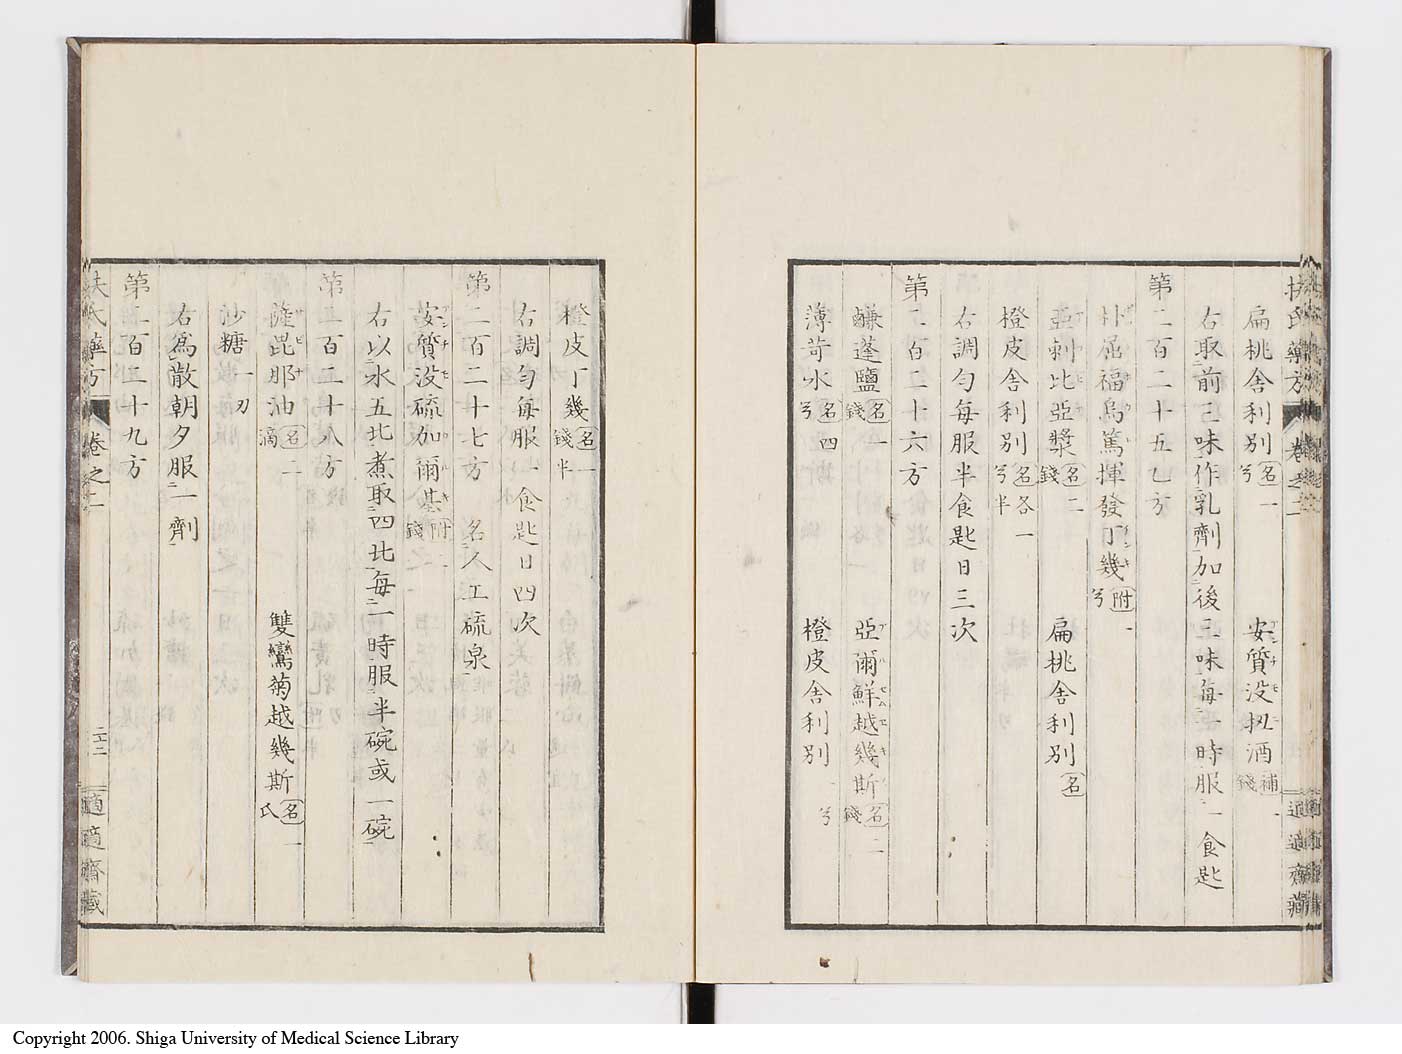 扶氏藥方 卷之二 適適齋藏
扁桃舍利別名一兮 安質没扭酒補一錢
右取前三味作乳劑加後三味每一時服一食匙
第二百二十五乙方
屈福烏篤揮發丁幾附一兮
亞剌比亞漿名二錢 扁桃舍利別名
橙皮舍利別名各一兮半
右調勻每服半食匙日三次
第二百二十六方
鹻蓬鹽名一錢 亞爾鮮越幾斯名二錢
薄苛水名四兮 橙皮舍利別一兮
橙皮丁幾名一錢半
右調勻每服一食匙日四次
第二百二十七方 名人工硫泉
安質没硫加爾基附一錢
右以水五比煮取四比每一時服半碗或一碗
第二百二十八方
薩毘那油名二滴 雙鸞菊越幾斯名一氏
沙糖一刃
右為散朝夕服一劑
第二百二十九方
扶氏藥方 卷之二 三十二 適適齋藏
Copyright 2006. Shiga University of Medical Science Library